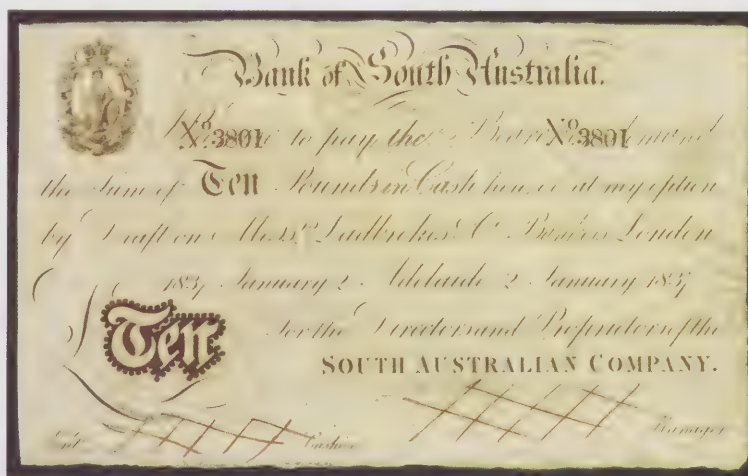 Bank of South Australia.
No. 3801 to pay the Bearer No. 3801 demand
the Sum of Ten Pounds in Cash here or at my option
by Draft on Messrs. Ladbrokes & Co. Bankers London
183 January 2 Adelaide 2 January 183
For the Directors and Proprietors of the
SOUTH AUSTRALIAN COMPANY.
Ten
Ent Cashier Manager